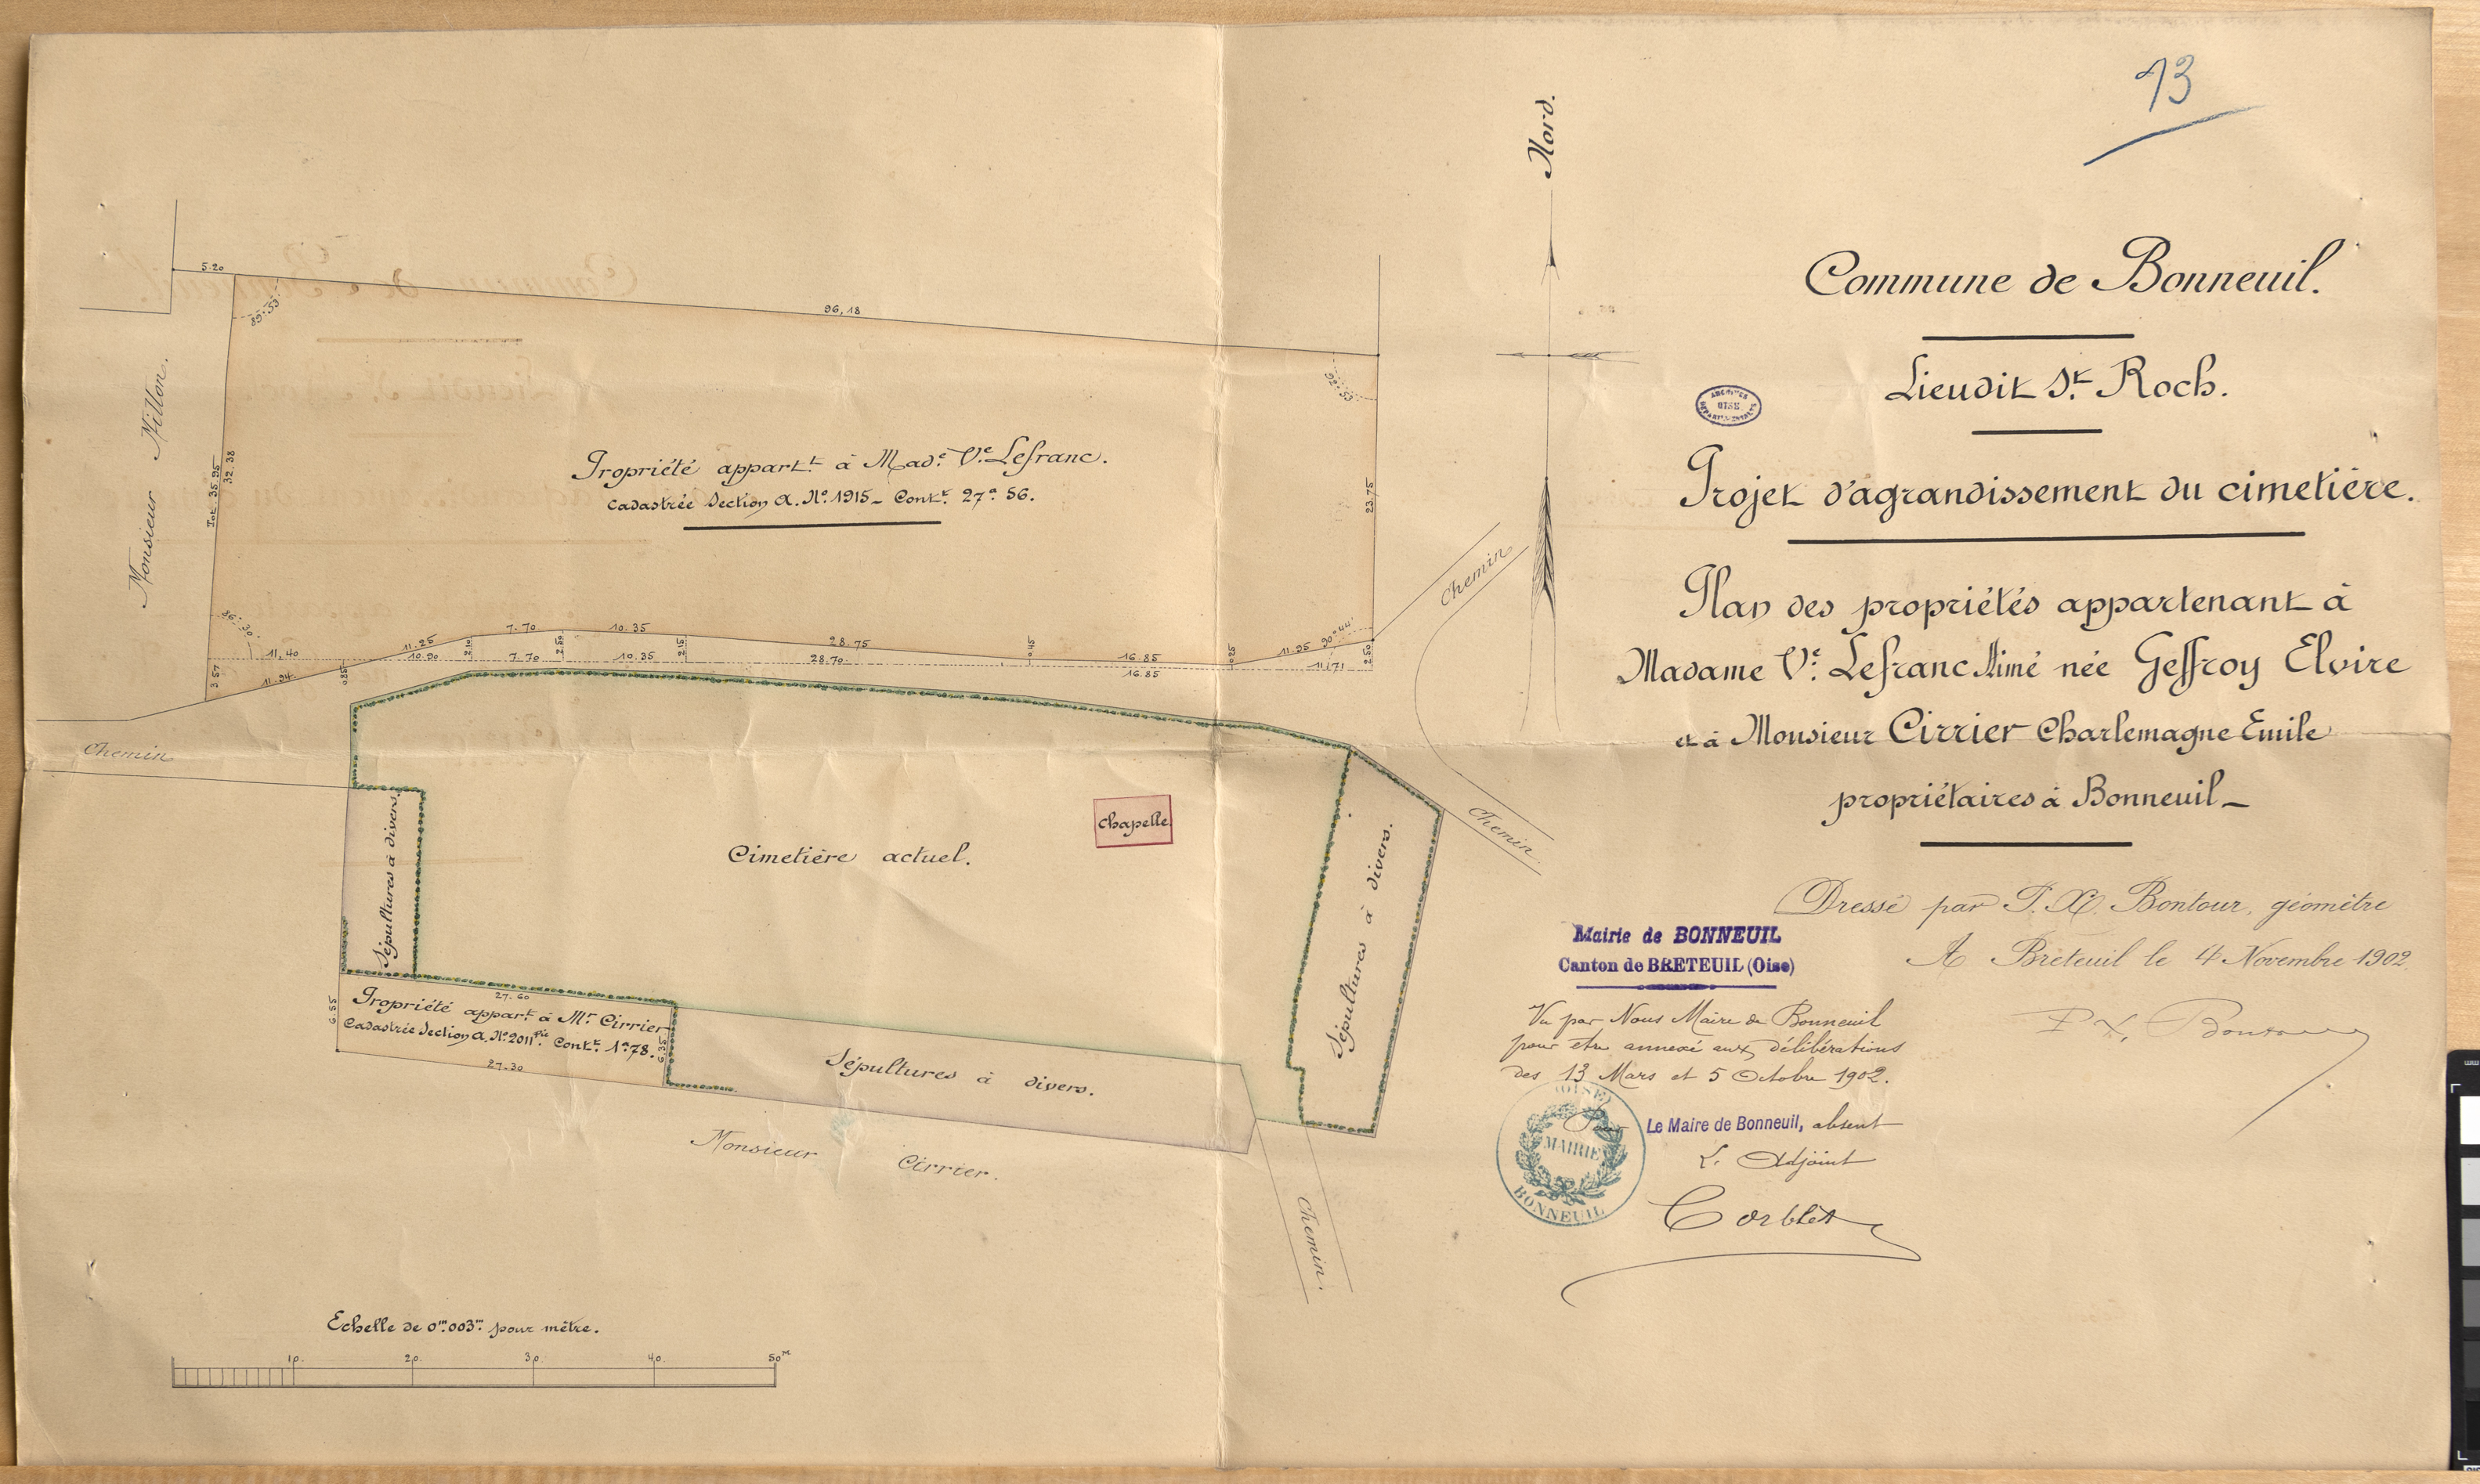 13
Nord.
Commune de Bonneuil.
Lieudit St. Roch.
ARCHIVES
OISE
Projet d'agrandissement du cimetière.
Plan des propriétés appartenant à
Madame Ve. Lefranc Aimé née Geffroy Elvire
et à Monsieur Cirrier Charlemagne Emile
propriétaires à Bonneuil_
Dressé par P. X. Bontour, géomètre
A Breteuil le 4 Novembre 1902.
P. X. Bontour
Mairie de BONNEUIL
Canton de BRETEUIL (Oise)
Vu par Nous Maire de Bonneuil
pour etre annexé aux délibérations
des 13 Mars et 5 Octobre 1902.
Pour Le Maire de Bonneuil, absent
L'Adjoint
Corblet
(OISE)
MAIRIE
BONNEUIL
5.20
96,18
89.53
92.53
Monsieur Nillon.
Tot. 35.95
32.38
23.75
Propriété appartt. à Made. Ve. Lefranc.
Cadastrée Section A. No. 1915_ Contce. 27a 56.
86.30
11.40
11.25
7.70
10.35
28.75
16.85
11.95
90.44
10.90
7.70
10.35
28.70
16.85
11.71
3.57
11.94
0.85
2.10
2.50
2.15
0.45
0.25
2.50
Chemin
Chemin
Chemin
Chemin.
Chapelle
Cimetière actuel.
Sépultures à divers.
Sépultures à divers.
Sépultures à divers.
27.60
6.55
Propriété appart. à Mr. Cirrier
Cadastrée Section A. No. 2011 pie. Contce. 1a 78.
6.35
27.30
Monsieur Cirrier.
Echelle de 0m.003m. pour mètre.
10. 20. 30. 40. 50M